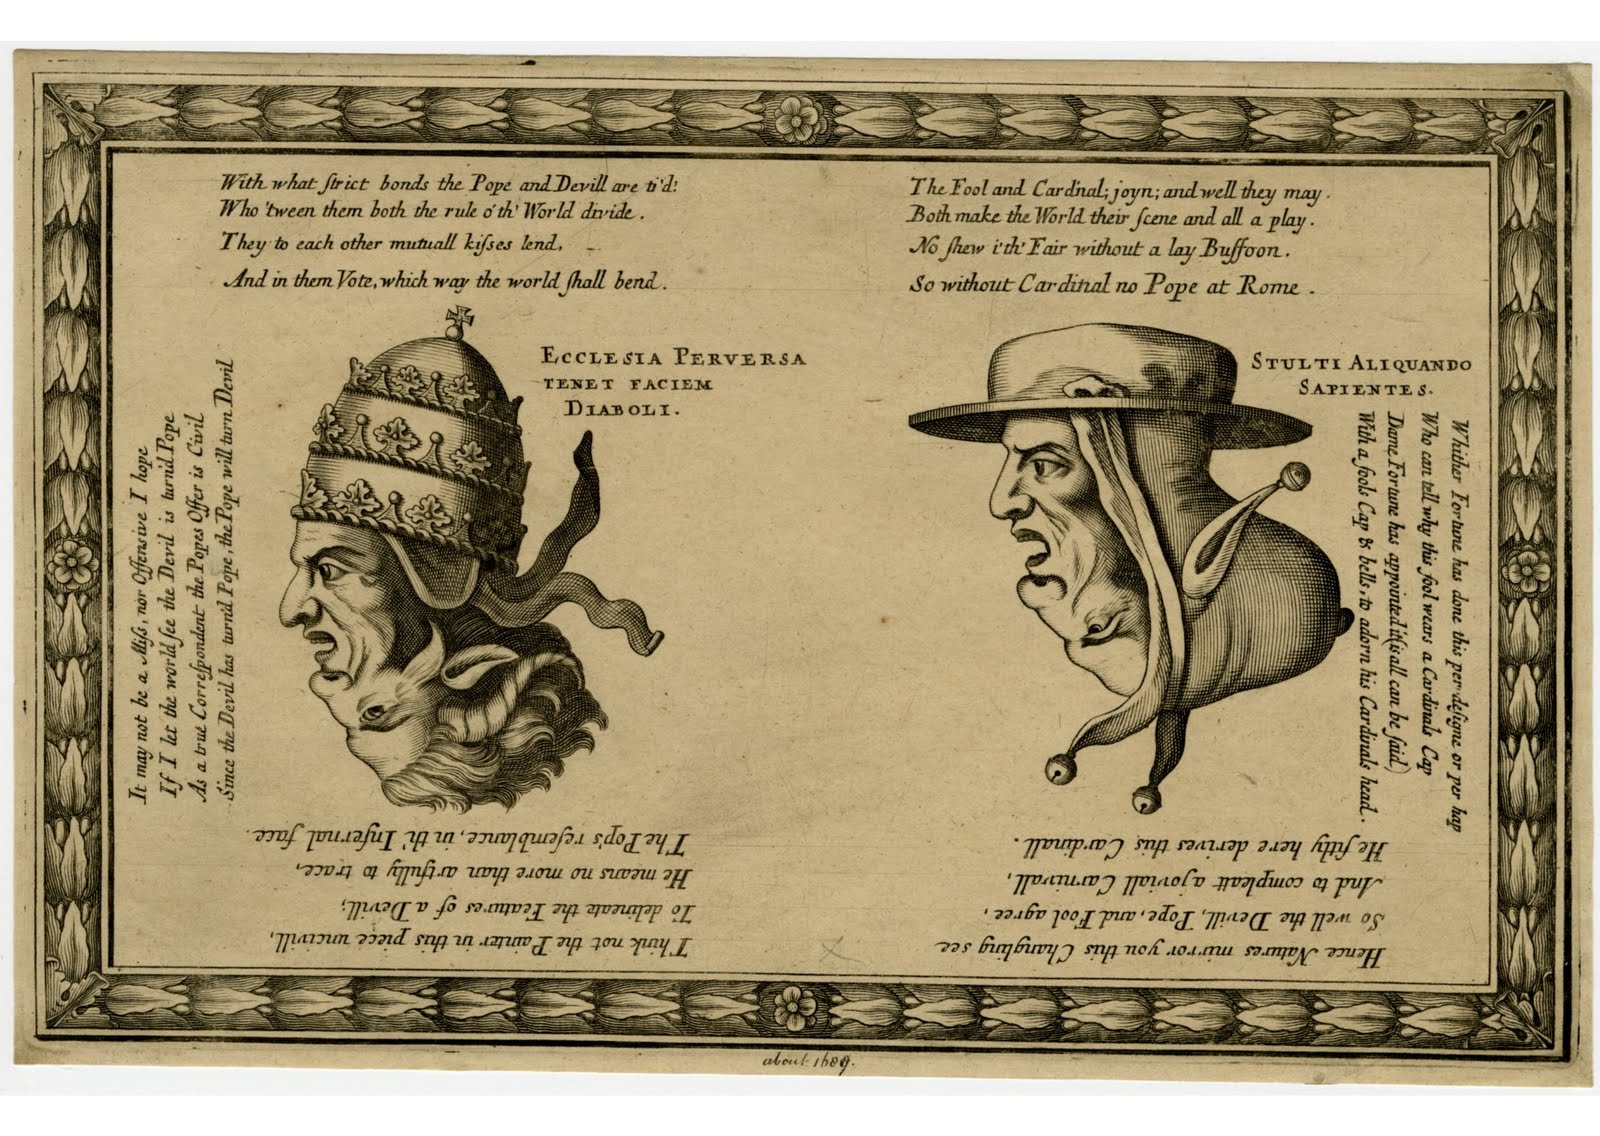 With what strict bonds the Pope and Devill are ti'd:
Who 'tween them both the rule o'th' World divide.
They to each other mutuall kisses lend,
And in them Vote, which way the world shall bend.
The Fool and Card'nal; joyn; and well they may.
Both make the World their scene and all a play.
No shew i'th' Fair without a lay Buffoon.
So without Cardinal no Pope at Rome.
ECCLESIA PERVERSA
TENET FACIEM
DIABOLI.
STULTI ALIQUANDO
SAPIENTES.
It may not be a Miss, nor Offensive I hope
If I let the world see the Devil is turn'd Pope
As a true Correspondent the Popes Offer is Civil
Since the Devil has turn'd Pope, the Pope will turn Devil
Whither Fortune has done this per designe or per hap
Who can tell why this fool wears a Cardinals Cap
Dame Fortune has appointed it (is all can be said)
With a fools Cap & bells, to adorn his Cardinals head.
Think not the Painter in this piece uncivill,
To delineate the Features of a Devill;
He means no more than artfully to trace,
The Pop's resemblance, in th' Infernal face.
Hence Natures mirror you this Changling see
So well the Devill, Pope, and Fool agree,
And to compleatt a joviall Carnivall,
He fitly here derives this Cardinall.
about 1689.